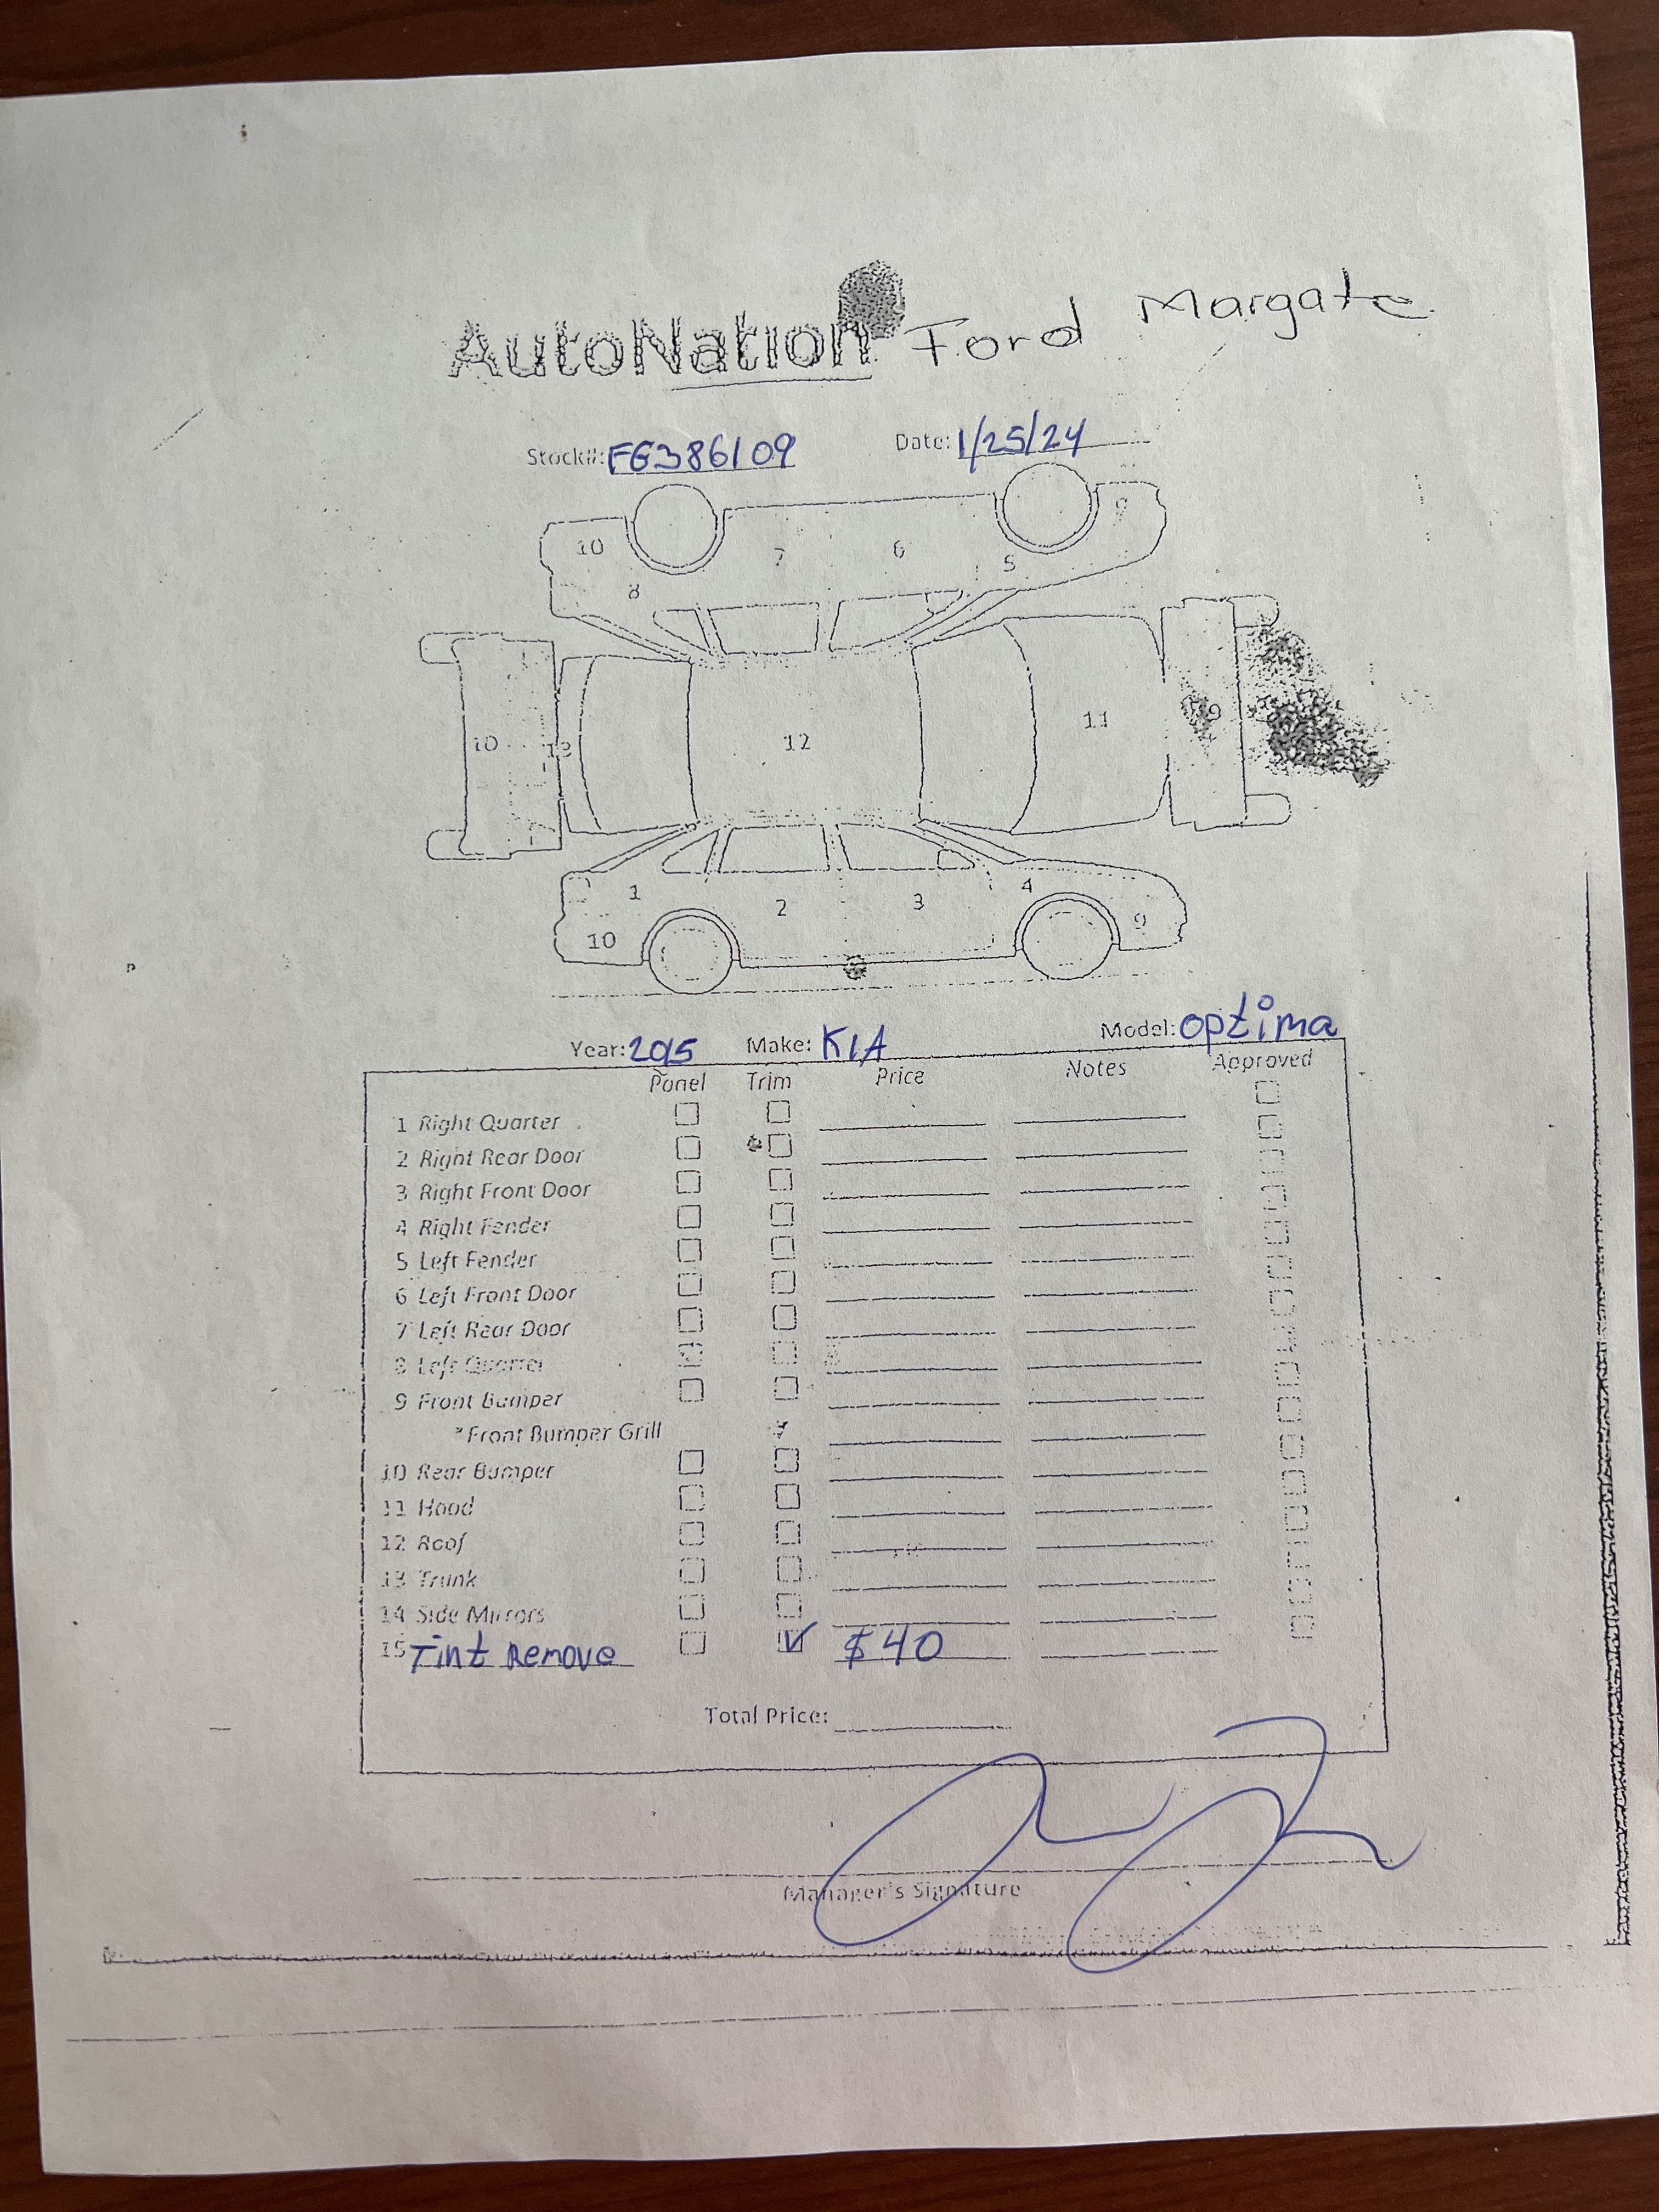 AutoNation Ford Margate
Stock#: FG386109 Date: 1/25/24
10 7 6 5 9
8
10 13 12 11 9
1 2 3 4 9
10
Year: 2015 Make: KIA Model: Optima
Panel Trim Price Notes Approved
1 Right Quarter
2 Right Rear Door
3 Right Front Door
4 Right Fender
5 Left Fender
6 Left Front Door
7 Left Rear Door
8 Left Quarter
9 Front Bumper
*Front Bumper Grill
10 Rear Bumper
11 Hood
12 Roof
13 Trunk
14 Side Mirrors
15 Tint Remove $40
Total Price:
Manager's Signature